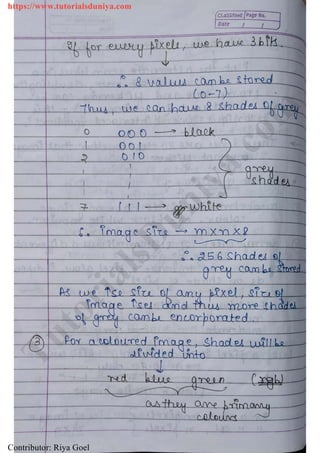 https://www.tutorialsduniya.com
Classmate Page No.
Date / /
If for every pixels, we have 3 bits.
↓
∴ 8 values can be stored
(0-7)
Thus, we can have 8 shades of grey
0 000 → black
1 001
2 010
grey
shades
7 111 → white
∴ image size → mxnx8
∴ 256 shades of
grey can be stored
As we ↑se size of any pixel, size of
image ↑ses and thus more shades
of grey can be encorporated...
③ For a coloured image, shades will be
divided into
↓
red blue green (rgb)
as they are primary
colours
Contributor: Riya Goel